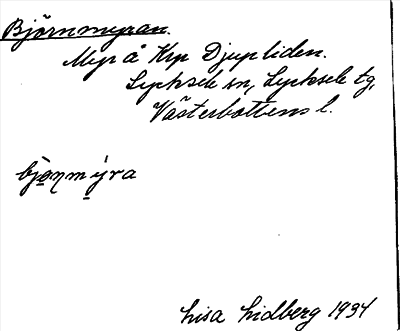 Björnmyran.
Myr å Krp Djupliden.
Lycksele sn, Lycksele tg,
Västerbottens l.
bjo̠ņm y̠ra
Lisa Lidberg 1934